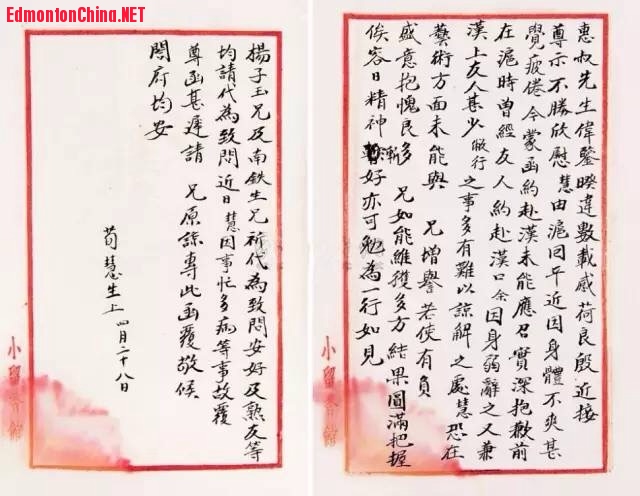 EdmontonChina.NET
惠叔先生偉鑒暌違數載感荷良殷近接
尊示不勝欣慰慧由滬回平近因身體不爽甚
覺疲倦今蒙函約赴漢未能應召實深抱歉前
在滬時曾經友人約赴漢口余因身弱辭之又兼
漢上友人甚少做行之事多有難以諒解之處慧恐在
藝術方面未能與 兄增譽若使有負
盛意抱愧良多 兄如能維護多方結果圓滿把握
俟容日精神漸好亦可勉為一行如見
楊子玉兄及南鉄生兄祈代為致問安好及熟友等
均請代為致問近日慧因事忙多病等事故覆
尊函甚遲請 兄原諒專此函覆敬候
閤府均安
荀慧生上 四月二十八日
小留香館
小留香館